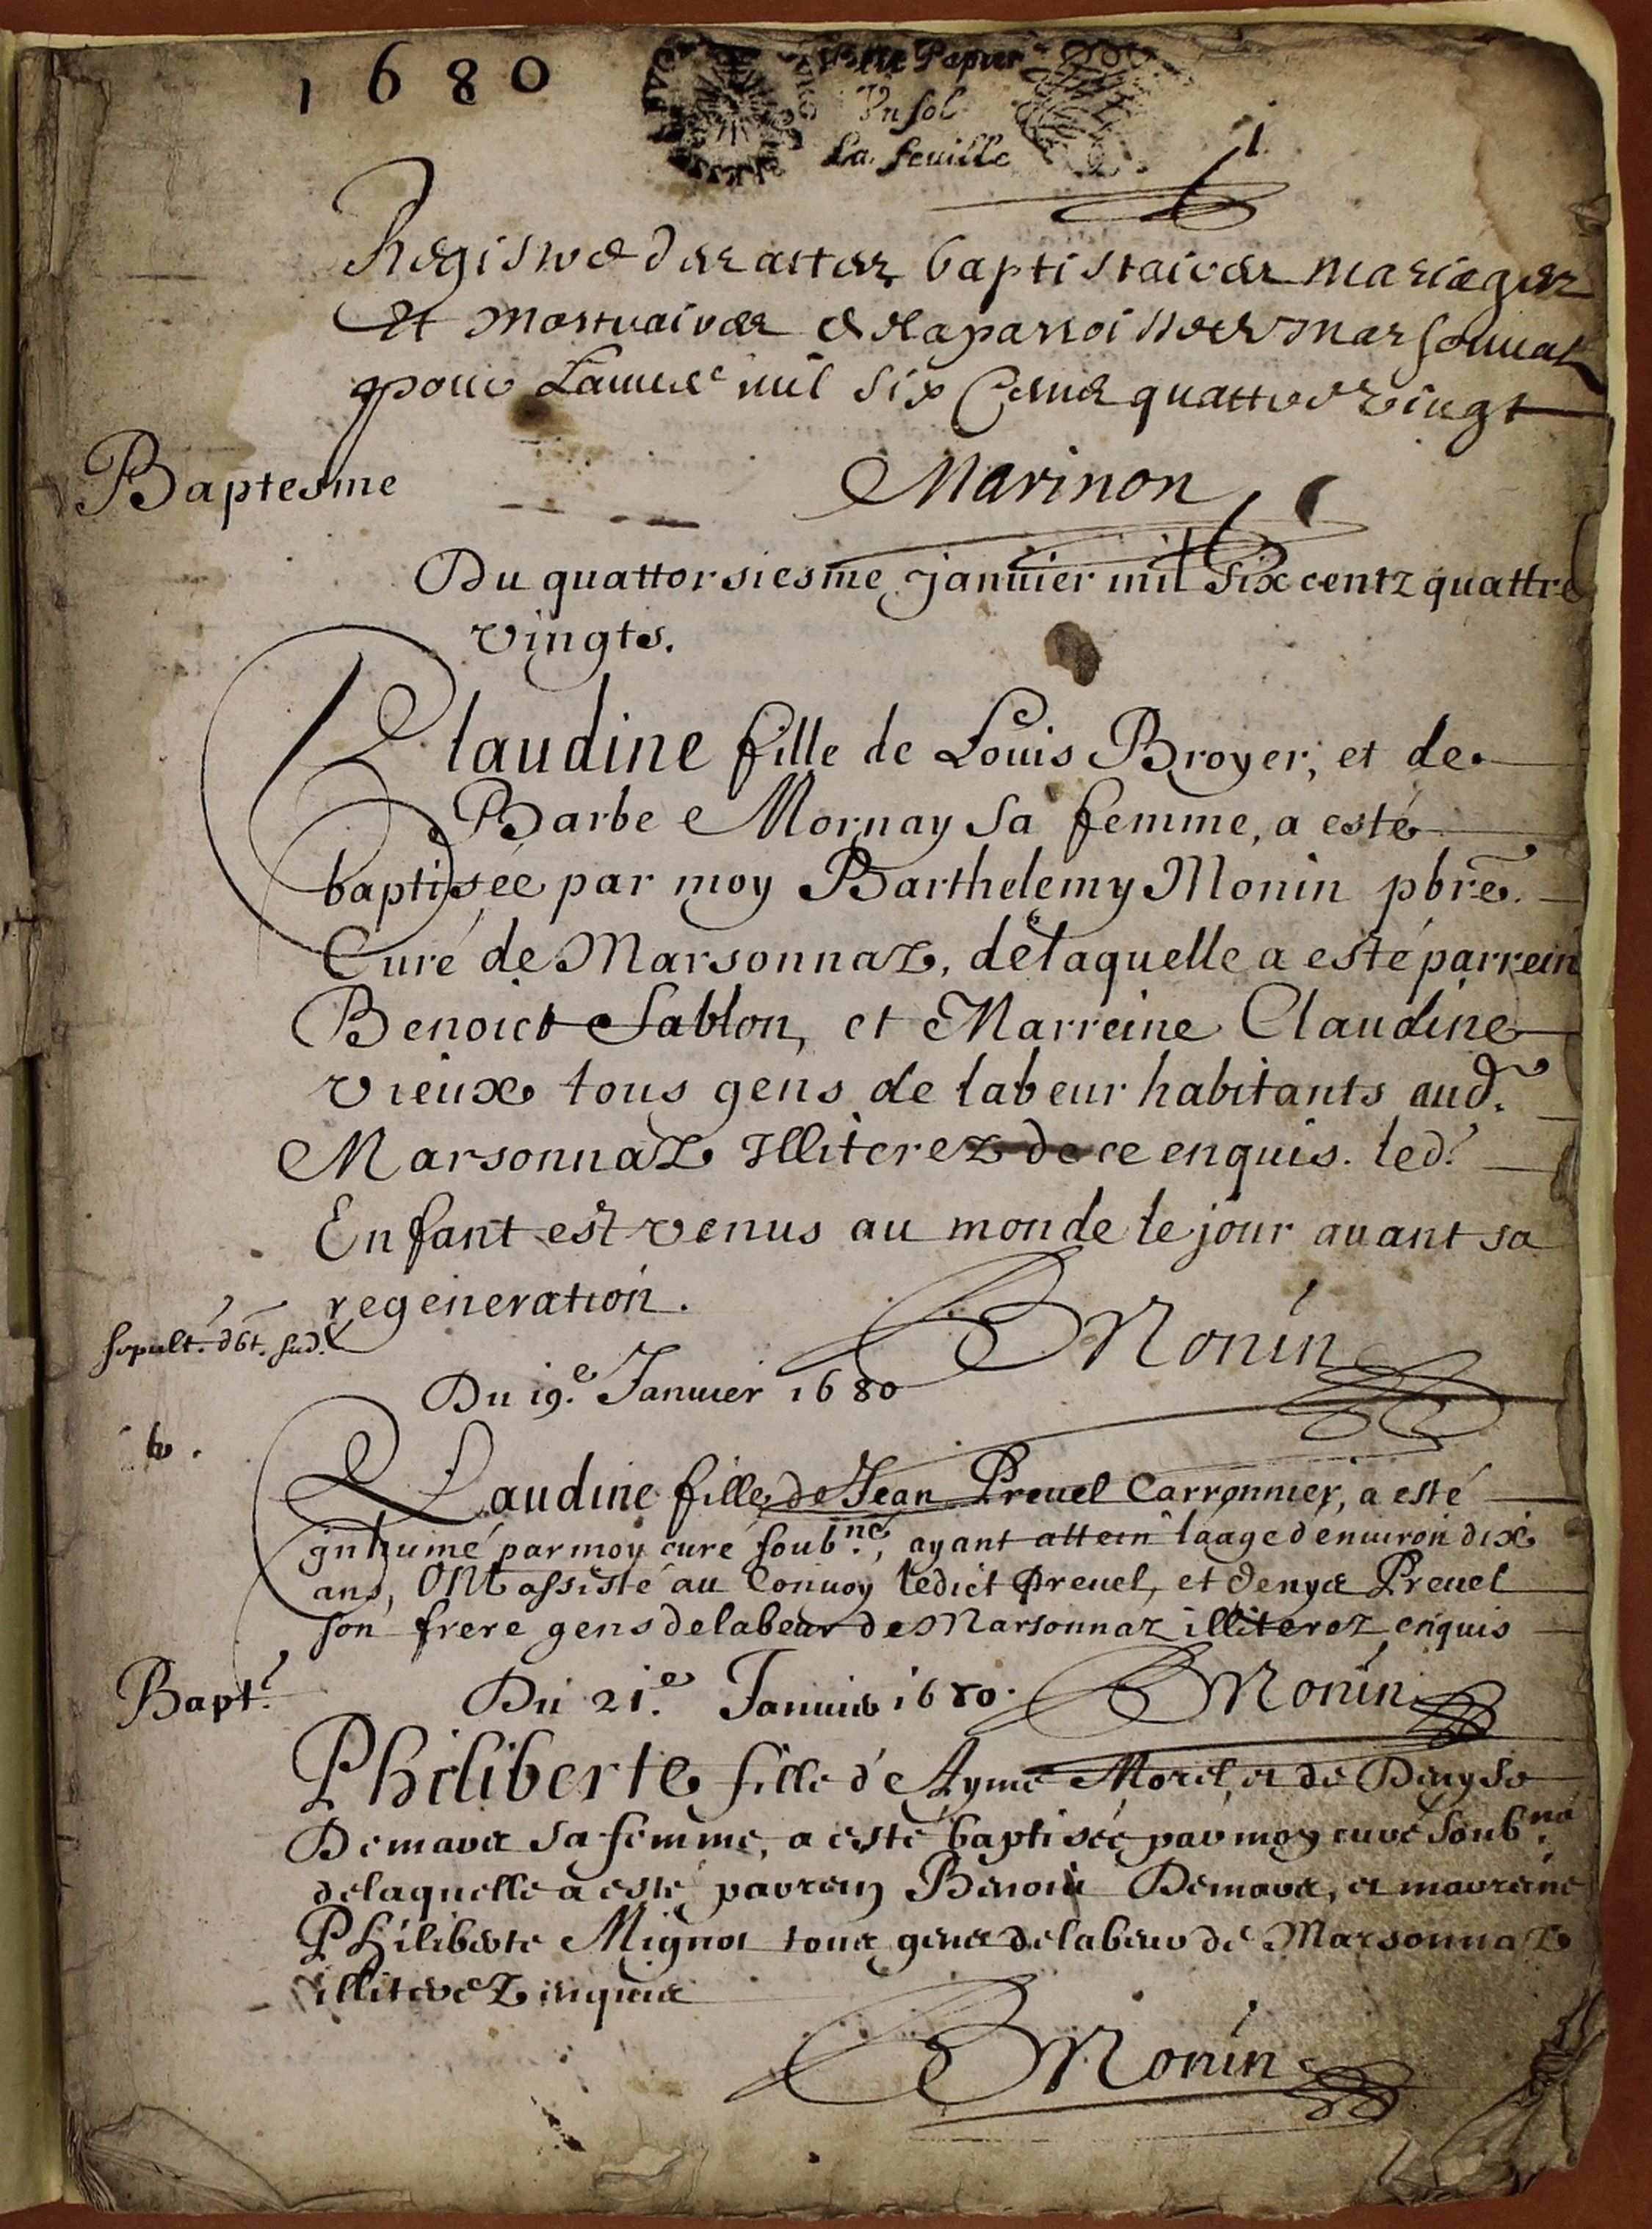 1680
Petit Papier
Un sol
La feuille
1.
Registre des actes baptistaires mariages
Et mortuaires de la parroisse de Marsonnas
pour Lannee mil six Cens quattre vingt
Baptesme
Marinon
Du quattorsiesme janvier mil Six centz quattre
vingts.
Claudine fille de Louis Broyer, et de
Barbe Mornay sa femme, a esté
baptisée par moy Barthelemy Monin pbre.
Curé de Marsonnaz, de laquelle a esté parrein
Benoict Sablon, et Marreine Claudine
vieux tous gens de labeur habitants aud.
Marsonnaz Illiterez de ce enquis. led.
Enfant est venus au monde le jour avant sa
regeneration.
BMonin
sepult.
Du 19.e Januier 1680
Claudine fille de Jean Preuel Carronnier, a esté
inhumé par moy curé soub.né, ayant attein laage d'enuiron dix
ans, Ont assisté au Conuoy ledict Preuel, et Denys Preuel
son frere gens de labeur de Marsonnaz illiterez enquis
Bapt.
Du 21.e Januier 1680.
BMonin
Philiberte fille de Ayme Morel, et de Denyse
Demares sa femme, a esté baptisée par moy curé soub.né
de laquelle a esté parrein Benoit Demares, et marreine
Philiberte Mignot tous gens de labeur de Marsonnaz
illiterez enquis
BMonin